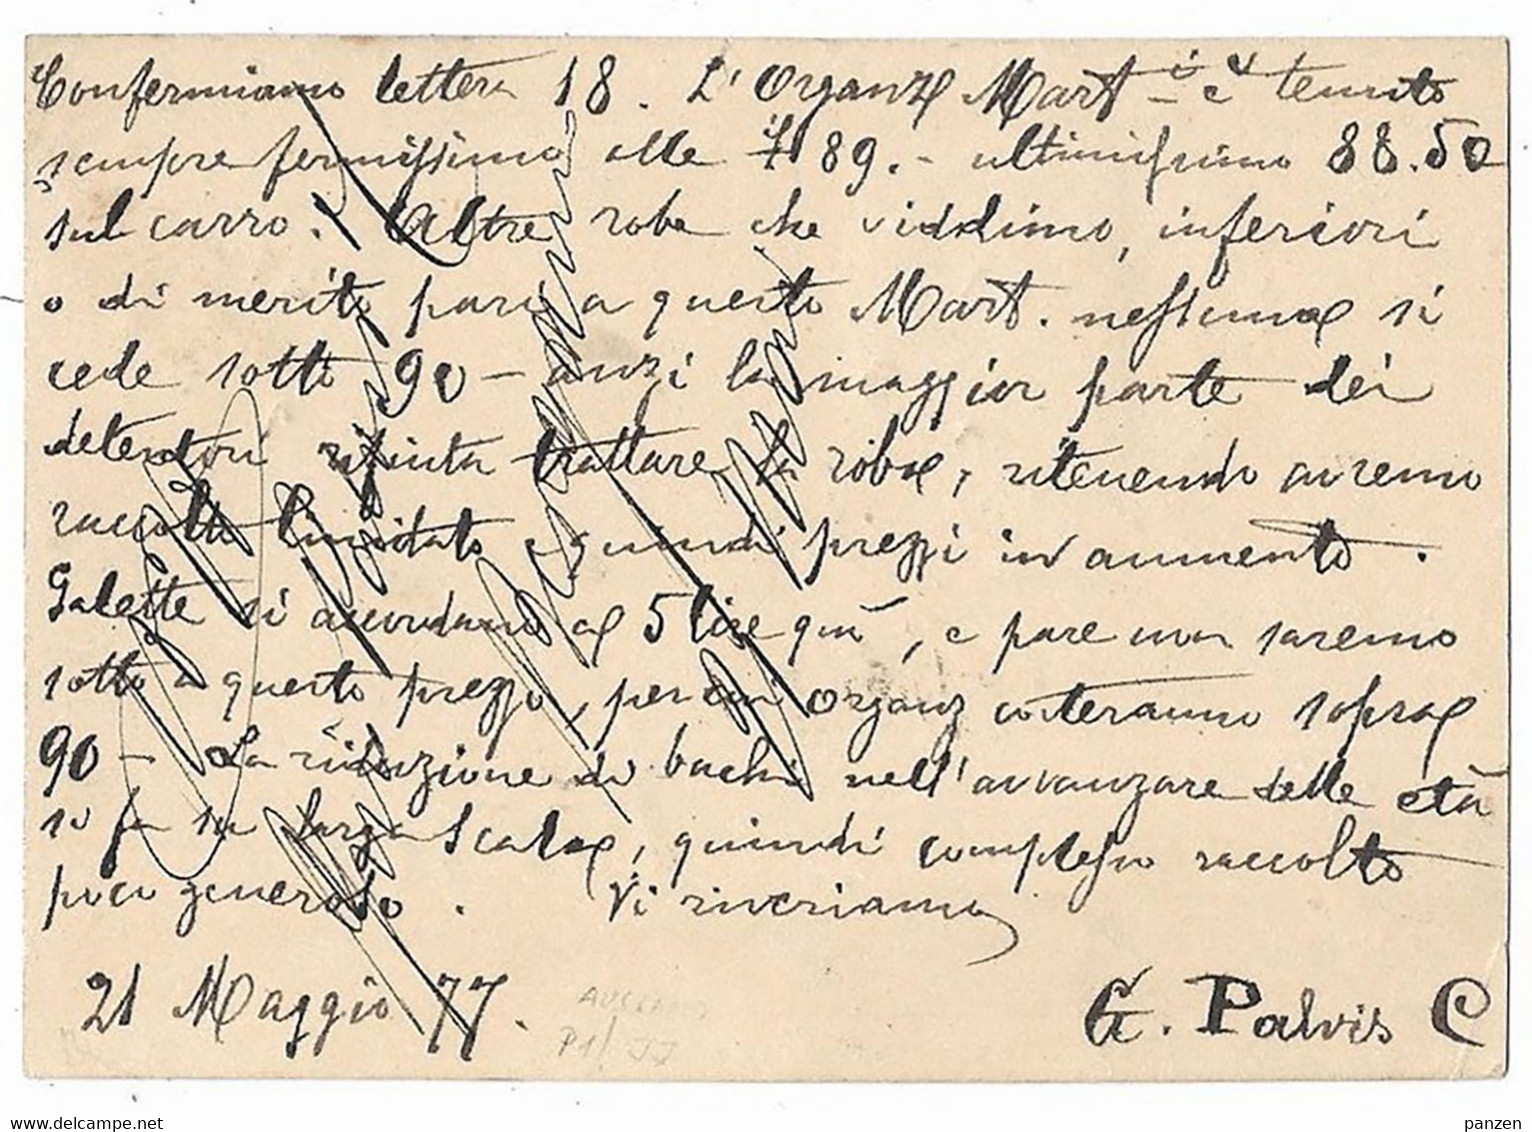 Confermiamo lettera 18. L'Organz Mart è tenuto
sempre fermissimo alle 89. - ultimissimo 88.50
sul carro. Altre robe che viddimo, inferiori
o di merito pari a questo Mart. nessuna si
cede sotto 90 - anzi la maggior parte dei
detentori rifiuta trattare la roba, ritenendo avremo
raccolto limitato e quindi prezzi in aumento.
Galette si accordano a 5 lire quà, e pare non saremo
sotto a questo prezzo, per cui Organz costeranno sopra
90 - La riduzione di bachi nell'avvanzare delle età
si fa su larga Scala, quindi complesso raccolto
poco generoso. Vi riveriamo
21 Maggio 77.
G. Palvis C
P1/JJ
www.delcampe.net
panzen